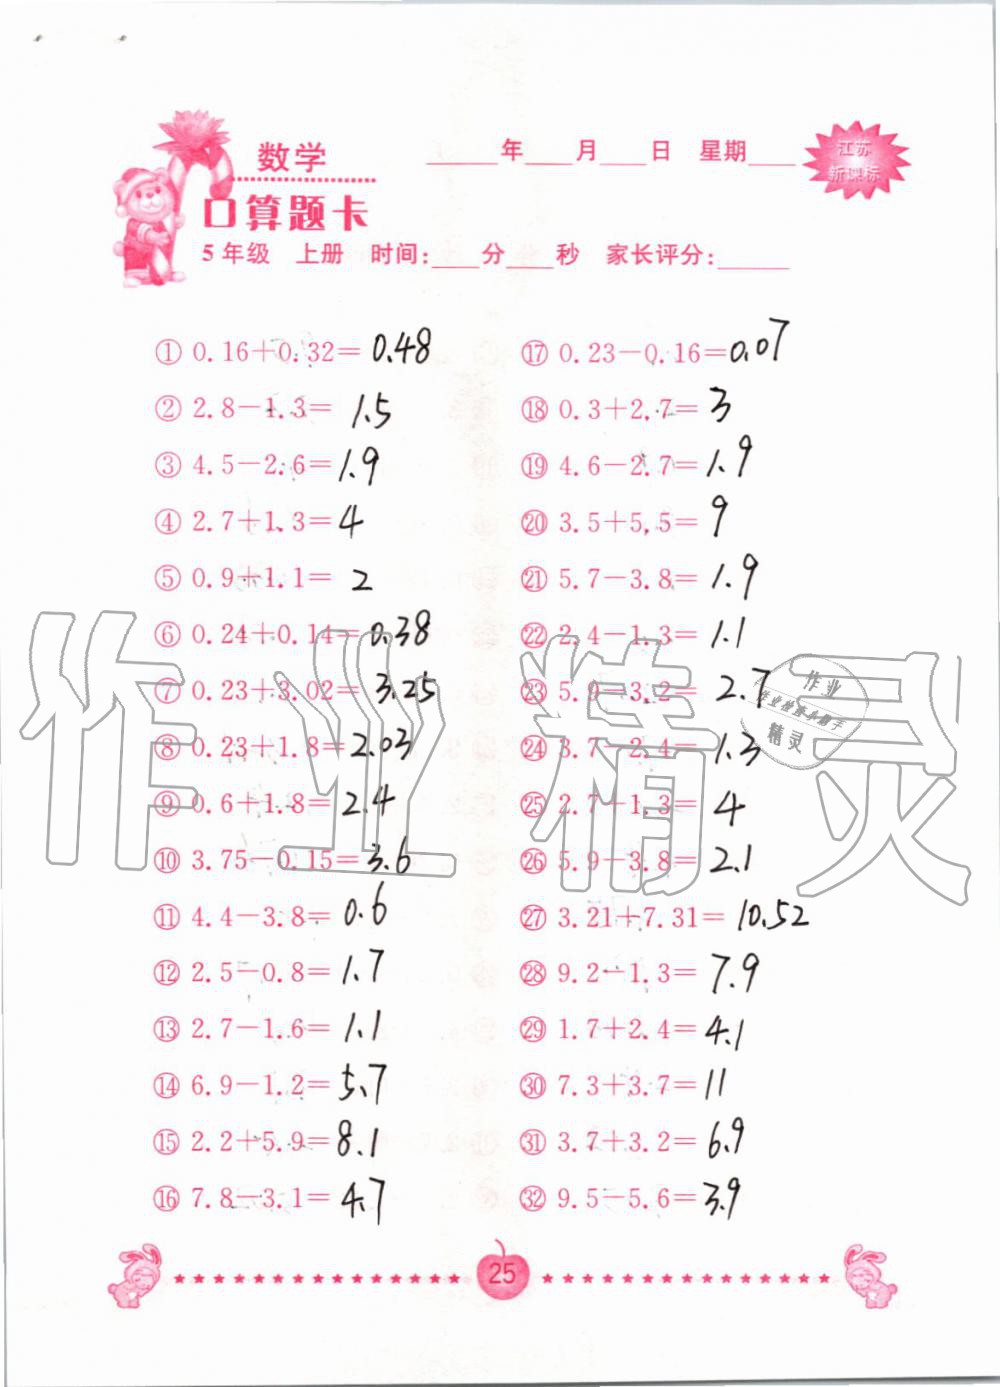 数学
____年____月____日 星期____
江苏
新课标
口算题卡
5年级 上册 时间:____分____秒 家长评分:____
① 0.16+0.32= 0.48
② 2.8-1.3= 1.5
③ 4.5-2.6= 1.9
④ 2.7+1.3= 4
⑤ 0.9+1.1= 2
⑥ 0.24+0.14= 0.38
⑦ 0.23+3.02= 3.25
⑧ 0.23+1.8= 2.03
⑨ 0.6+1.8= 2.4
⑩ 3.75-0.15= 3.6
⑪ 4.4-3.8= 0.6
⑫ 2.5-0.8= 1.7
⑬ 2.7-1.6= 1.1
⑭ 6.9-1.2= 5.7
⑮ 2.2+5.9= 8.1
⑯ 7.8-3.1= 4.7
⑰ 0.23-0.16= 0.07
⑱ 0.3+2.7= 3
⑲ 4.6-2.7= 1.9
⑳ 3.5+5.5= 9
㉑ 5.7-3.8= 1.9
㉒ 2.4-1.3= 1.1
㉓ 5.9-3.2= 2.7
㉔ 3.7-2.4= 1.3
㉕ 2.7+1.3= 4
㉖ 5.9-3.8= 2.1
㉗ 3.21+7.31= 10.52
㉘ 9.2-1.3= 7.9
㉙ 1.7+2.4= 4.1
㉚ 7.3+3.7= 11
㉛ 3.7+3.2= 6.9
㉜ 9.5-5.6= 3.9
作业精灵
作业
作业检查小助手
精灵
25